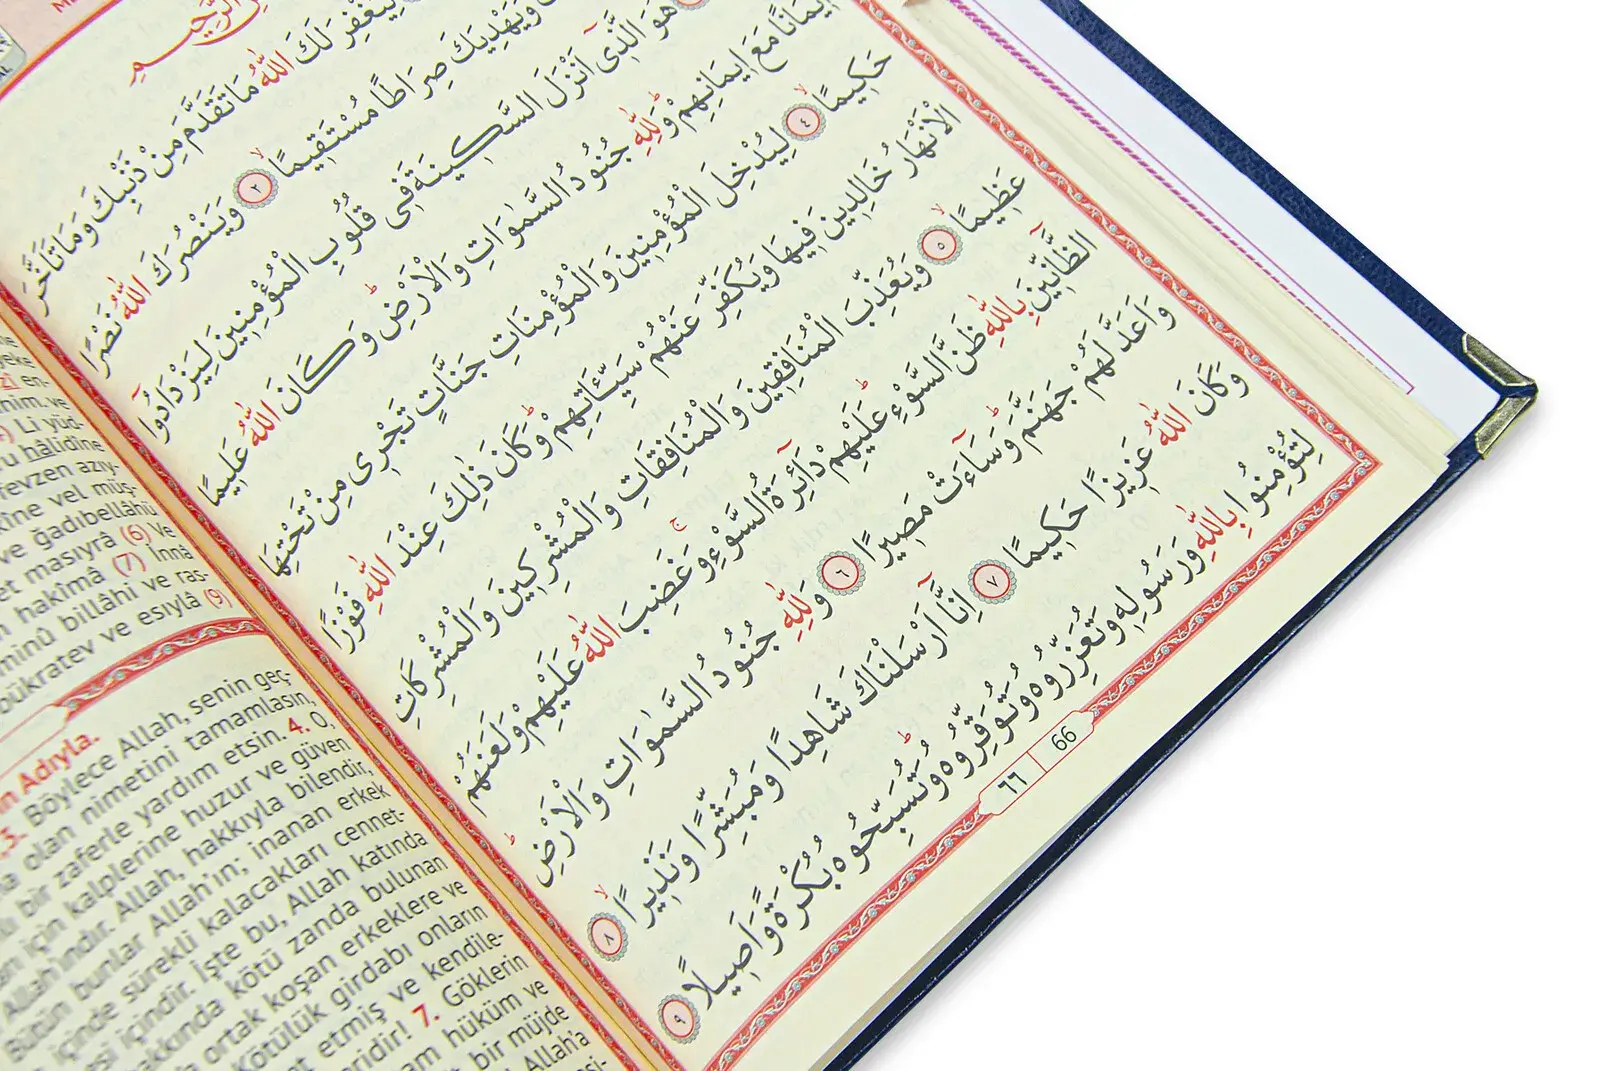 الرَّحِيمِ
لِيَغْفِرَ لَكَ اللّٰهُ مَا تَقَدَّمَ مِنْ ذَنْبِكَ وَمَا تَاَخَّرَ
وَيَهْدِيَكَ صِرَاطًا مُسْتَقِيمًا ﴿٢﴾ وَيَنْصُرَكَ اللّٰهُ نَصْرًا
هُوَ الَّذٓى اَنْزَلَ السَّكٖينَةَ فٖى قُلُوبِ الْمُؤْمِنٖينَ لِيَزْدَادُٓوا
اٖيمَانًا مَعَ اٖيمَانِهِمْ وَلِلّٰهِ جُنُودُ السَّمٰوَاتِ وَالْاَرْضِ وَكَانَ اللّٰهُ عَلٖيمًا
حَكٖيمًا ﴿٤﴾ لِيُدْخِلَ الْمُؤْمِنٖينَ وَالْمُؤْمِنَاتِ جَنَّاتٍ تَجْرٖى مِنْ تَحْتِهَا
الْاَنْهَارُ خَالِدٖينَ فٖيهَا وَيُكَفِّرَ عَنْهُمْ سَيِّـَٔاتِهِمْ وَكَانَ ذٰلِكَ عِنْدَ اللّٰهِ فَوْزًا
عَظٖيمًا ﴿٥﴾ وَيُعَذِّبَ الْمُنَافِقٖينَ وَالْمُنَافِقَاتِ وَالْمُشْرِكٖينَ وَالْمُشْرِكَاتِ
الظَّٓانّٖينَ بِاللّٰهِ ظَنَّ السَّوْءِ عَلَيْهِمْ دَٓائِرَةُ السَّوْءِ وَغَضِبَ اللّٰهُ عَلَيْهِمْ وَلَعَنَهُمْ
وَاَعَدَّ لَهُمْ جَهَنَّمَ وَسَٓاءَتْ مَصٖيرًا ﴿٦﴾ وَلِلّٰهِ جُنُودُ السَّمٰوَاتِ وَالْاَرْضِ
وَكَانَ اللّٰهُ عَزٖيزًا حَكٖيمًا ﴿٧﴾ اِنَّٓا اَرْسَلْنَاكَ شَاهِدًا وَمُبَشِّرًا وَنَذٖيرًا ﴿٨﴾
لِتُؤْمِنُوا بِاللّٰهِ وَرَسُولِهٖ وَتُعَزِّرُوهُ وَتُوَقِّرُوهُ وَتُسَبِّحُوهُ بُكْرَةً وَاَصٖيلًا ﴿٩﴾
٦٦ 66
zî en-
him ve
Li yüd-
ru hâlidîne
fevzen azıy-
kîne vel müş-
ve ğadıbellâhü
et masıyrâ (6) Ve
hakîmâ (7) İnnâ
minû billâhi ve ras-
bükratev ve esıylâ (9)
Adıyla.
3. Böylece Allah, senin geç-
olan nimetini tamamlasın,
bir zaferle yardım etsin. 4. O,
için kalplerine huzur ve güven
Allah'ındır. Allah, hakkıyla bilendir,
Bütün bunlar Allah'ın; inanan erkek
içinde sürekli kalacakları cennet-
içindir. İşte bu, Allah katında
hakkında kötü zanda bulunan
ortak koşan erkeklere ve
Kötülük girdabı onların
etmiş ve kendile-
7. Göklerin
hüküm ve
bir müjde
Allah'a